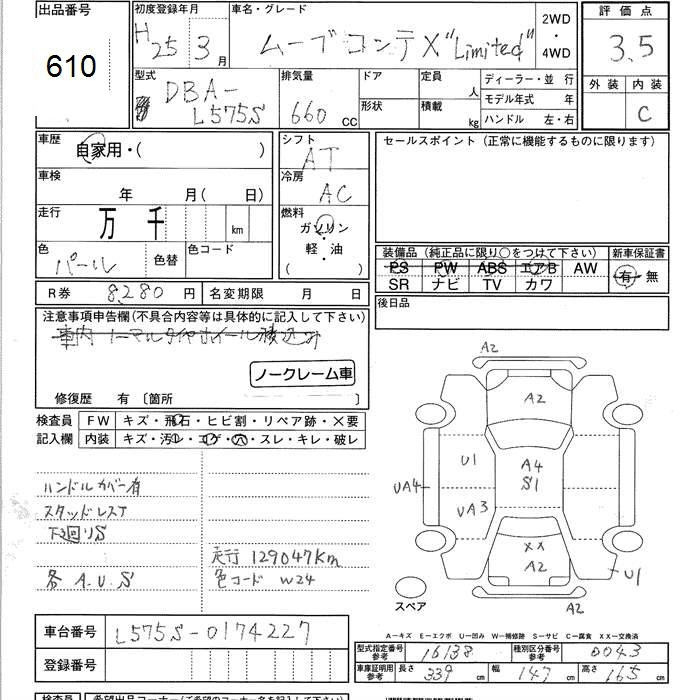 出品番号
610
初度登録年月
H25 3月
車名・グレード
ムーブコンテ X "Limited"
2WD
・
4WD
評価点
3.5
外装 内装
C
型式
DBA-
L575S
排気量
660 CC
ドア
形状
定員 人
積載 kg
ディーラー・並 行
モデル年式 年
ハンドル 左・右
車歴
自家用・( )
シフト
AT
セールスポイント (正常に機能するものに限ります)
車検
年 月( 日)
冷房
AC
走行
万 千 km
燃料
ガソリン
・
軽・油
( )
色
パール
色替
色コード
装備品 (純正品に限り○をつけて下さい) 新車保証書
PS PW ABS エアB AW
SR ナビ TV カワ
有・無
R券 8,280 円 名変期限 月 日
後日品
注意事項申告欄 (不具合内容等は具体的に記入して下さい)
車内 ノーマルタイヤホイール積込み
ノークレーム車
修復歴 有 〔箇所 〕
検査員 FW キズ・飛石・ヒビ割・リペア跡・×要
記入欄 内装 キズ・汚れ・コゲ・穴・スレ・キレ・破レ
ハンドルカバー有
スタッドレスT
下廻りS
各 A.U.S
走行 129047Km
色コード W24
A2
A2
U1
A4
S1
UA4
UA3
XX
A2
U1
A2
スペア
A－キズ E－エクボ U－凹み W－補修跡 S－サビ C－腐食 XX－交換済
車台番号 L575S-0174227
型式指定番号 参考 16138 種別区分番号 参考 0043
登録番号
車庫証明用 参考 長さ 339 cm 幅 147 cm 高さ 165 cm
検査員 希望出品コーナー(ご希望のコーナー名を記入下さい)